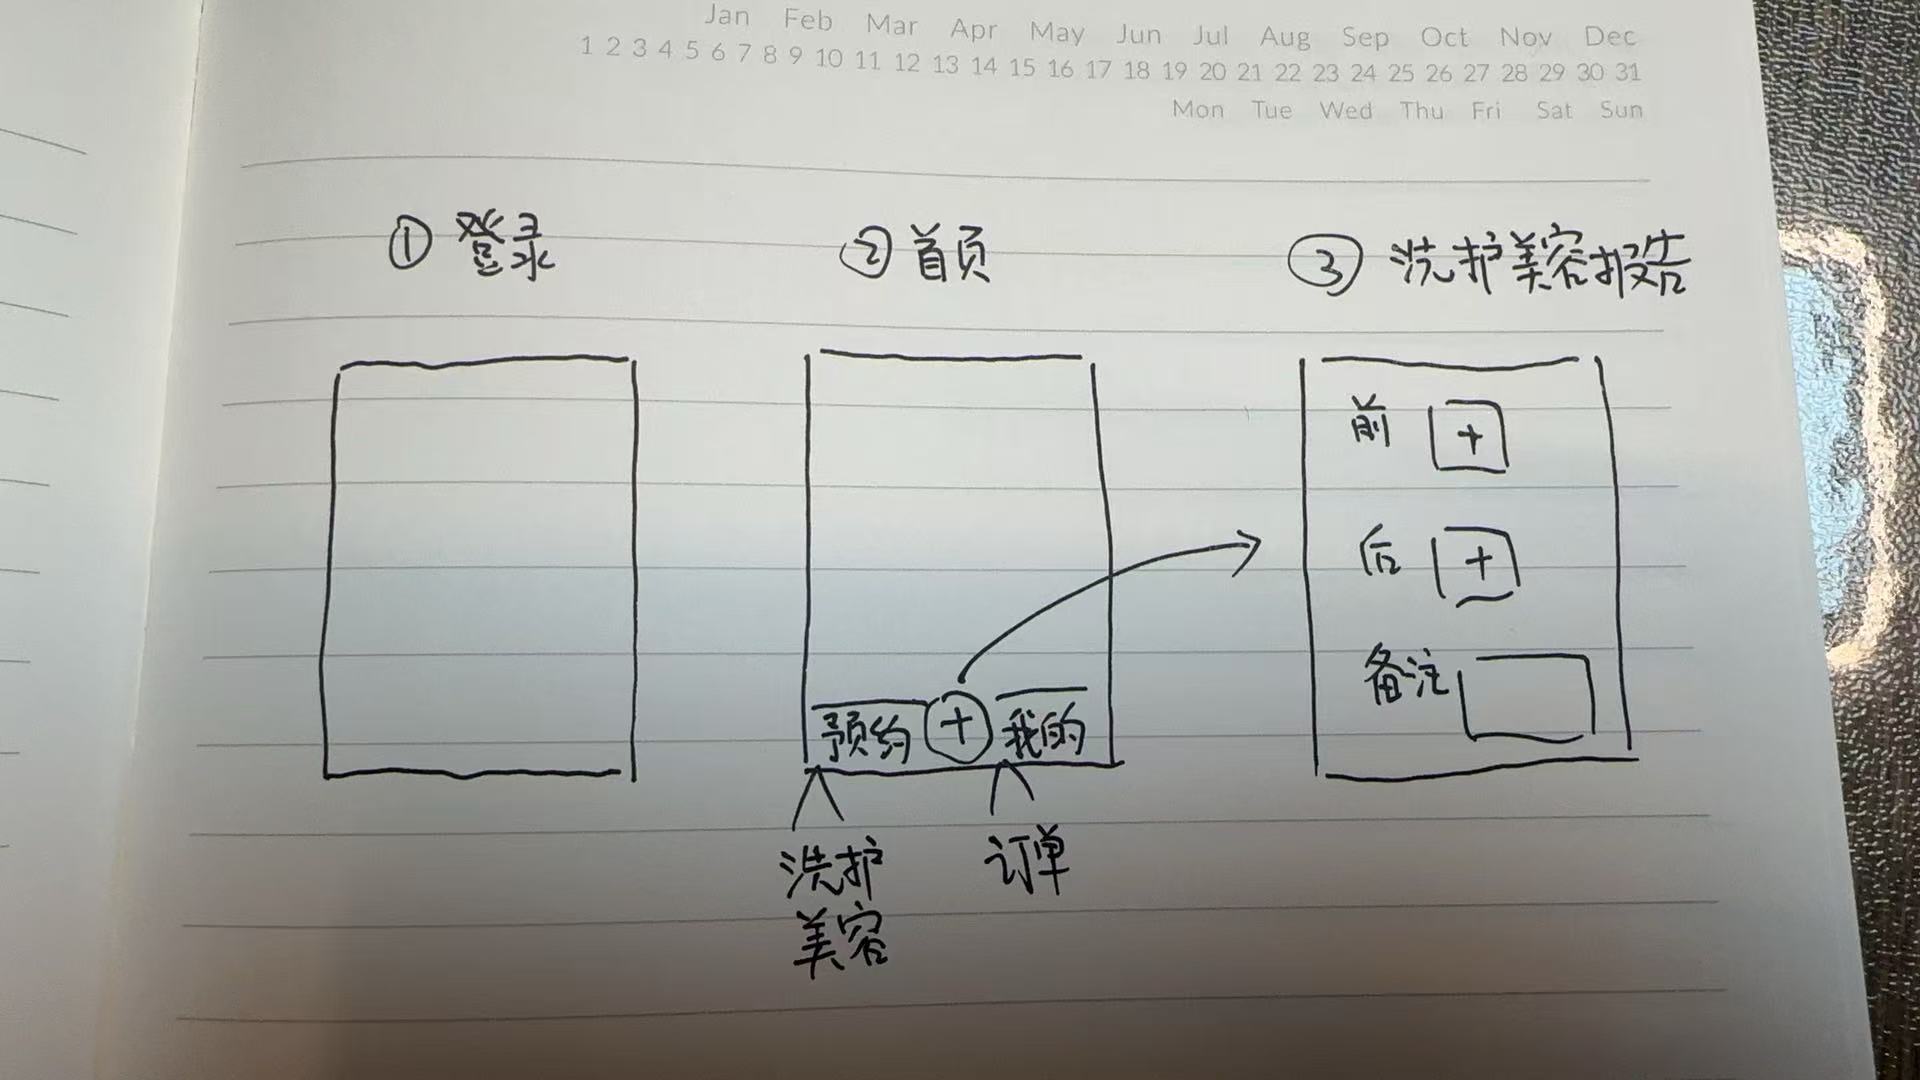 Jan Feb Mar Apr May Jun Jul Aug Sep Oct Nov Dec
1 2 3 4 5 6 7 8 9 10 11 12 13 14 15 16 17 18 19 20 21 22 23 24 25 26 27 28 29 30 31
Mon Tue Wed Thu Fri Sat Sun
① 登录
② 首页
③ 洗护美容报告
前 +
后 +
备注
预约 + 我的
洗护
美容
订单